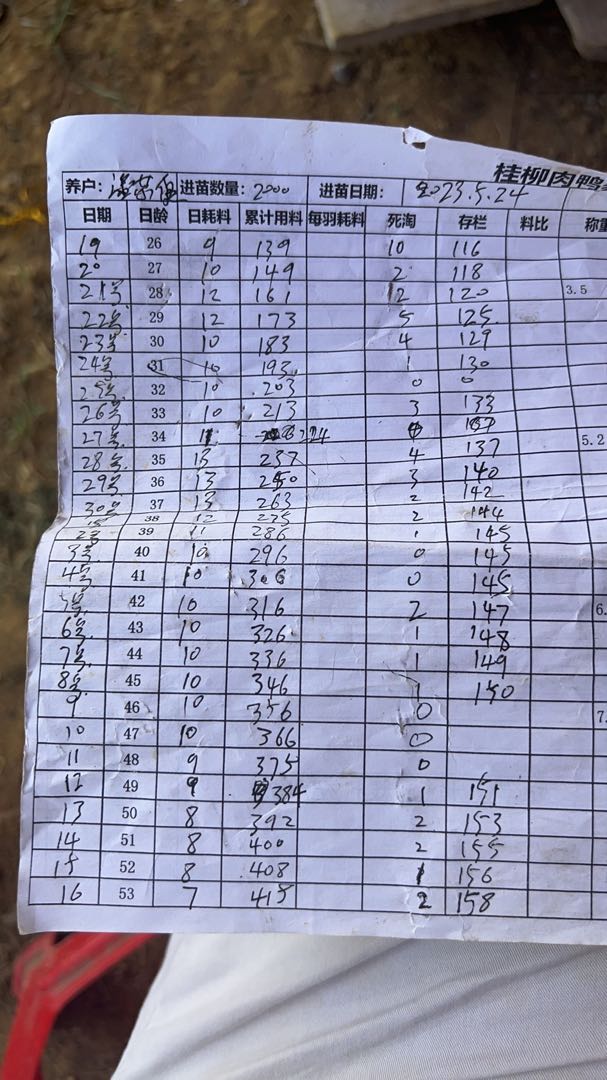 桂柳肉鸭
养户： 进苗数量：2000 进苗日期：2023.5.24
日期 日龄 日耗料 累计用料 每羽耗料 死淘 存栏 料比 称重
19 26 9 139 10 116
20 27 10 149 2 118
21号 28 12 161 2 120 3.5
22号 29 12 173 5 125
23号 30 10 183 4 129
24号 31 10 193 1 130
25号 32 10 203 0 0
26号 33 10 213 3 133
27号 34 11 224 5.2
28号 35 13 237 4 137
29号 36 13 250 3 140
30号 37 13 263 2 142
38 12 275 2 144
2号 39 11 286 1 145
3号 40 10 296 0 145
4号 41 10 306 0 145
5号 42 10 316 2 147 6.
6号 43 10 326 1 148
7号 44 10 336 1 149
8号 45 10 346 1 150
9 46 10 356 0 7.
10 47 10 366 0
11 48 9 375 0
12 49 9 384 1 151
13 50 8 392 2 153
14 51 8 400 2 155
15 52 8 408 1 156
16 53 7 415 2 158